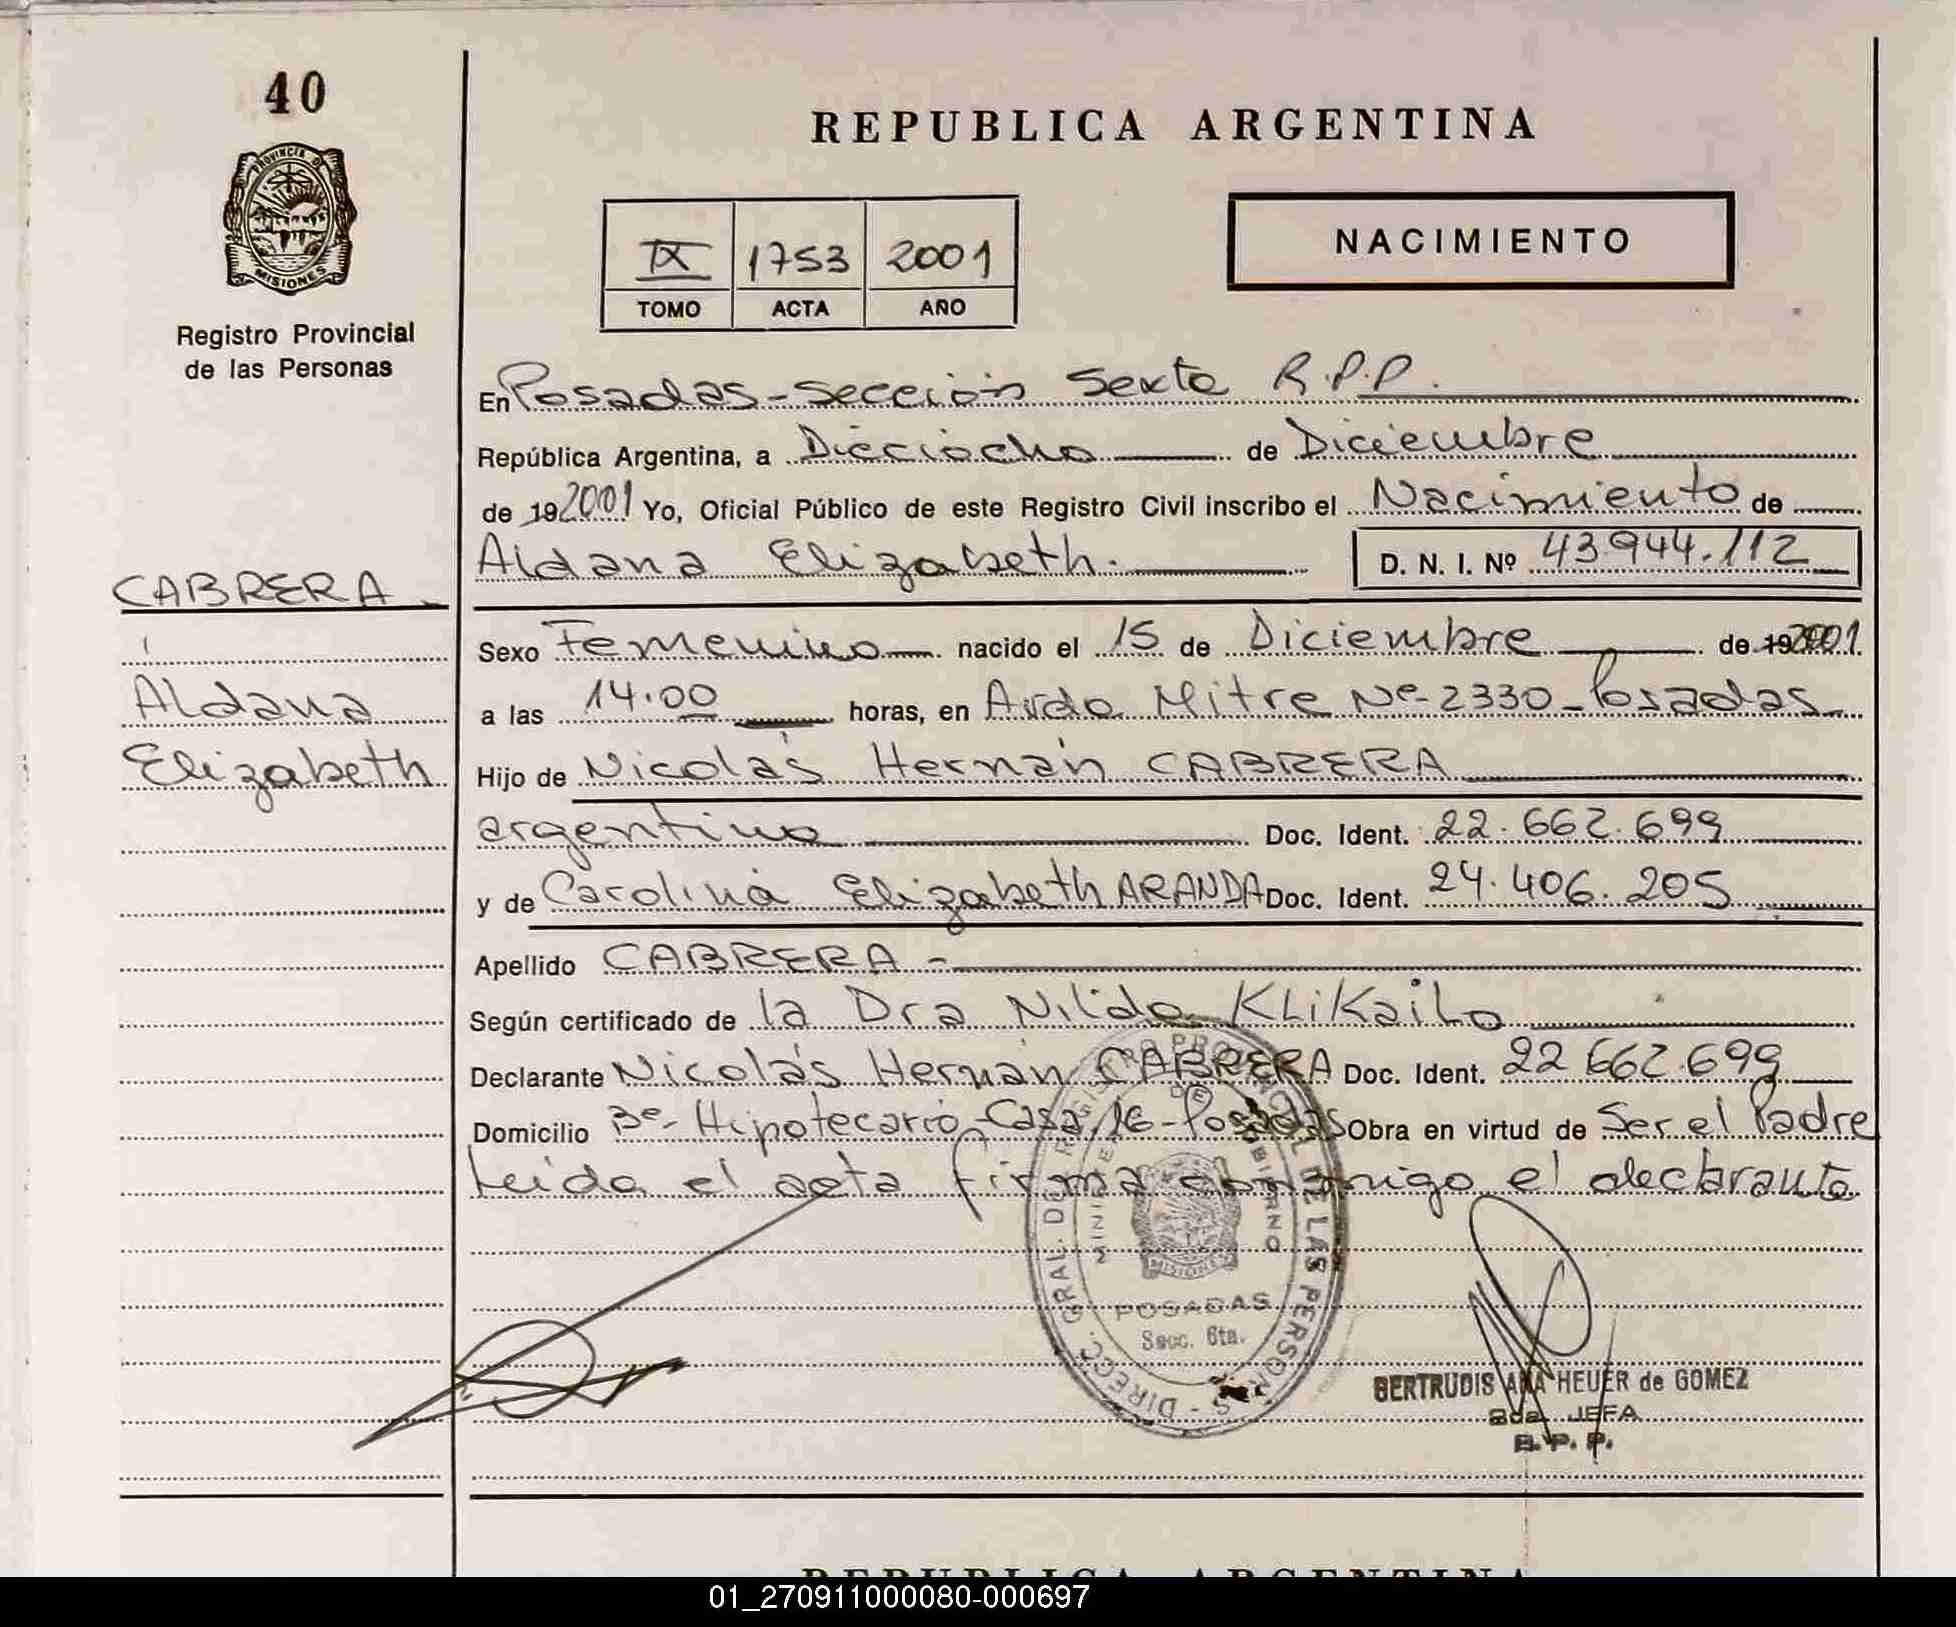 40
PROVINCIA DE
MISIONES
Registro Provincial
de las Personas
REPUBLICA ARGENTINA
IX 1753 2001
TOMO ACTA AÑO
NACIMIENTO
En Posadas-Sección Sexta R.P.P.
República Argentina, a Dieciocho de Diciembre
de 19 2001 Yo, Oficial Público de este Registro Civil inscribo el Nacimiento de
Aldana Elizabeth. D. N. I. Nº 43.944.112
CABRERA
Aldana
Elizabeth
Sexo Femenino nacido el 15 de Diciembre de 19 2001
a las 14.00 horas, en Avda Mitre Nº-2330-Posadas
Hijo de Nicolás Hernán CABRERA
argentino Doc. Ident. 22.662.699
y de Carolina Elizabeth ARANDA Doc. Ident. 24.406.205
Apellido CABRERA -
Según certificado de la Dra Nilda KLiKailo
Declarante Nicolás Hernán CABRERA Doc. Ident. 22 662.699
Domicilio Bº-Hipotecario-Casa 16-Posadas Obra en virtud de Ser el Padre
Leida el acta firma conmigo el declarante
DIRECC. GRAL. DEL REGISTRO PROVINCIAL DE LAS PERSONAS
MINISTERIO DE GOBIERNO
MISIONES
POSADAS
Secc. 6ta.
GERTRUDIS ANA HEUER de GOMEZ
2da. JEFA
R. P. P.
REPUBLICA ARGENTINA
01_270911000080-000697